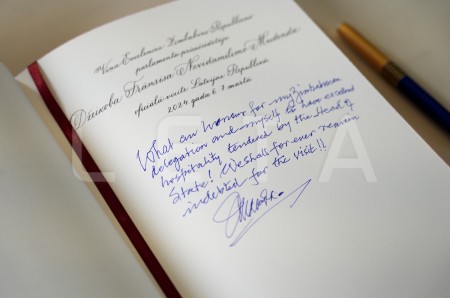 Viņa Ekselences Zimbabves Republikas
parlamenta priekšsēdētāja
Džeikoba Fransisa Nzvidamilimo Mudendas
oficiālā vizīte Latvijas Republikā
2024. gada 6.-7. marts
What an honour for my Zimbabwean
delegation and myself to have excellent
hospitality tendered by the Head of
State! We shall for ever remain
indebted for the visit!!
LETA